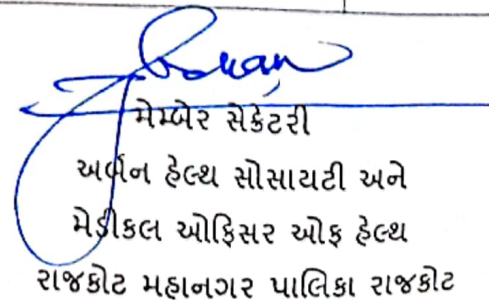 મેમ્બર સેક્રેટરી
અર્બન હેલ્થ સોસાયટી અને
મેડીકલ ઓફિસર ઓફ હેલ્થ
રાજકોટ મહાનગર પાલિકા રાજકોટ